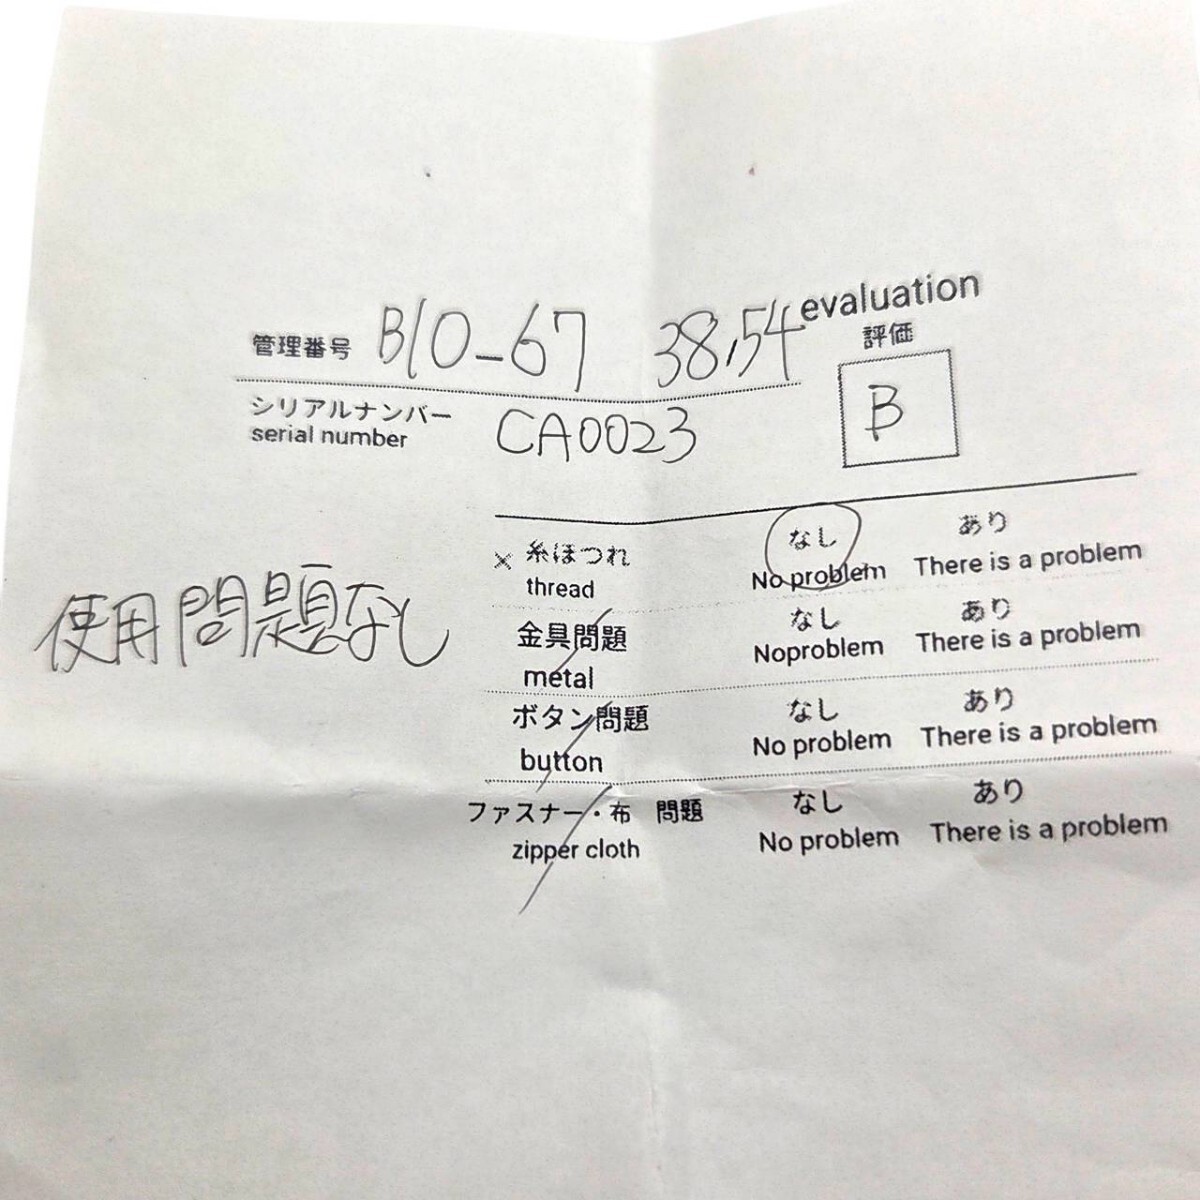 管理番号 B10-67 38,54
evaluation
評価
B
シリアルナンバー
serial number CA0023
× 糸ほつれ なし あり
thread No problem There is a problem
金具問題 なし あり
metal Noproblem There is a problem
使用問題なし
ボタン問題 なし あり
button No problem There is a problem
ファスナー・布 問題 なし あり
zipper cloth No problem There is a problem